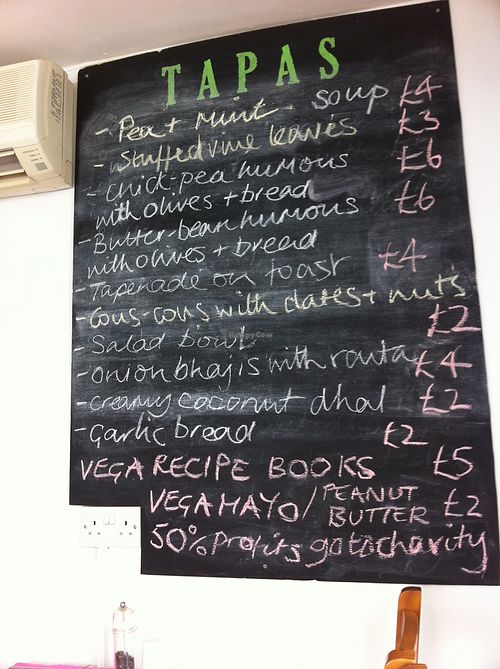 TAPAS
- Pea + Mint. Soup £4
- Stuffed vine leaves £3
- chick-pea humous £6
with olives + bread
- Butter-bean humous £6
with olives + bread
- Tapenade on toast £4
- Cous-cous with dates + nuts
- Salad bowl £2
- onion bhajis with raita £4
- creamy coconut dhal £2
- garlic bread £2
VEGA RECIPE BOOKS £5
VEGA MAYO / PEANUT BUTTER £2
50% Profits go to charity
HappyCow